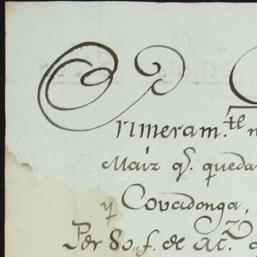 Primeram.te
Maiz q.e queda
y Covadonga,
Por 80. f. de